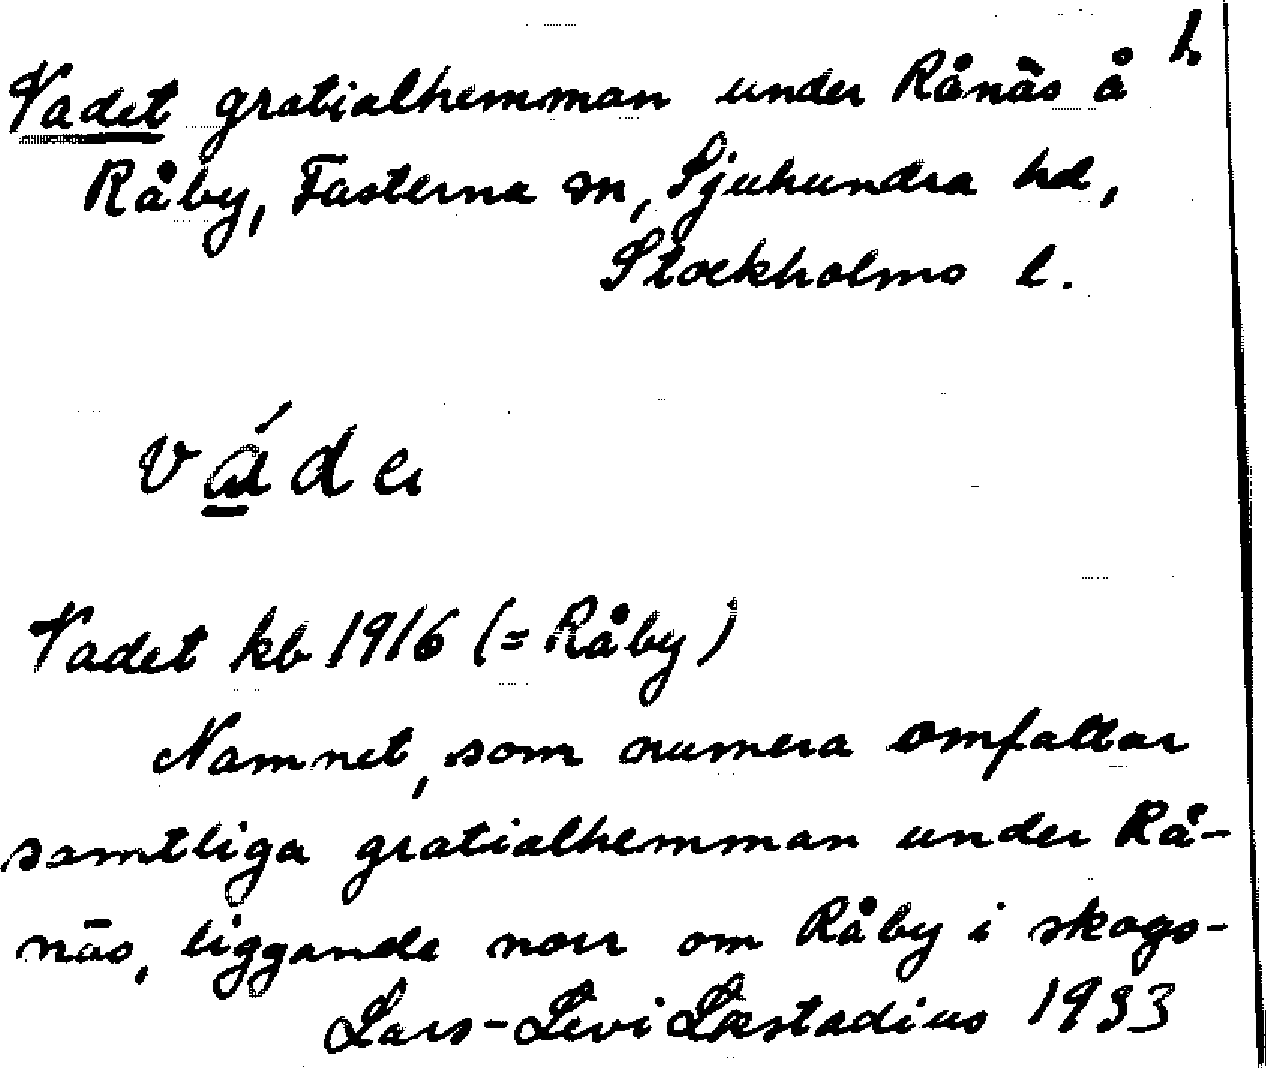 1.
Vadet gratialhemman under Rånäs å
Råby, Fasterna sn, Sjuhundra hd,
Stockholms l.
Vadet kb 1916 (= Råby)
Namnet, som numera omfattar
samtliga gratialhemman under Rå-
näs, liggande norr om Råby i skogs-
Lars-Levi Læstadius 1933